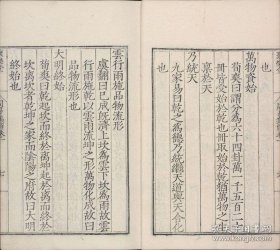 萬物資始
荀爽曰謂分為六十四卦萬一千五百二十
冊皆受始於乾也冊取始於乾猶萬物之生
稟於天
乃統天
九家易曰乾之為德乃統繼天道與天合化
也
雲行雨施品物流形
虞翻曰已成既濟上坎為雲下坎為雨故雲
行雨施乾以雲雨流坤之形萬物化成故曰
品物流形也
大明終始
荀爽曰乾起坎而終於離坤起於離而終於
坎離坎者乾坤之家而陰陽之府故曰大明
終始也